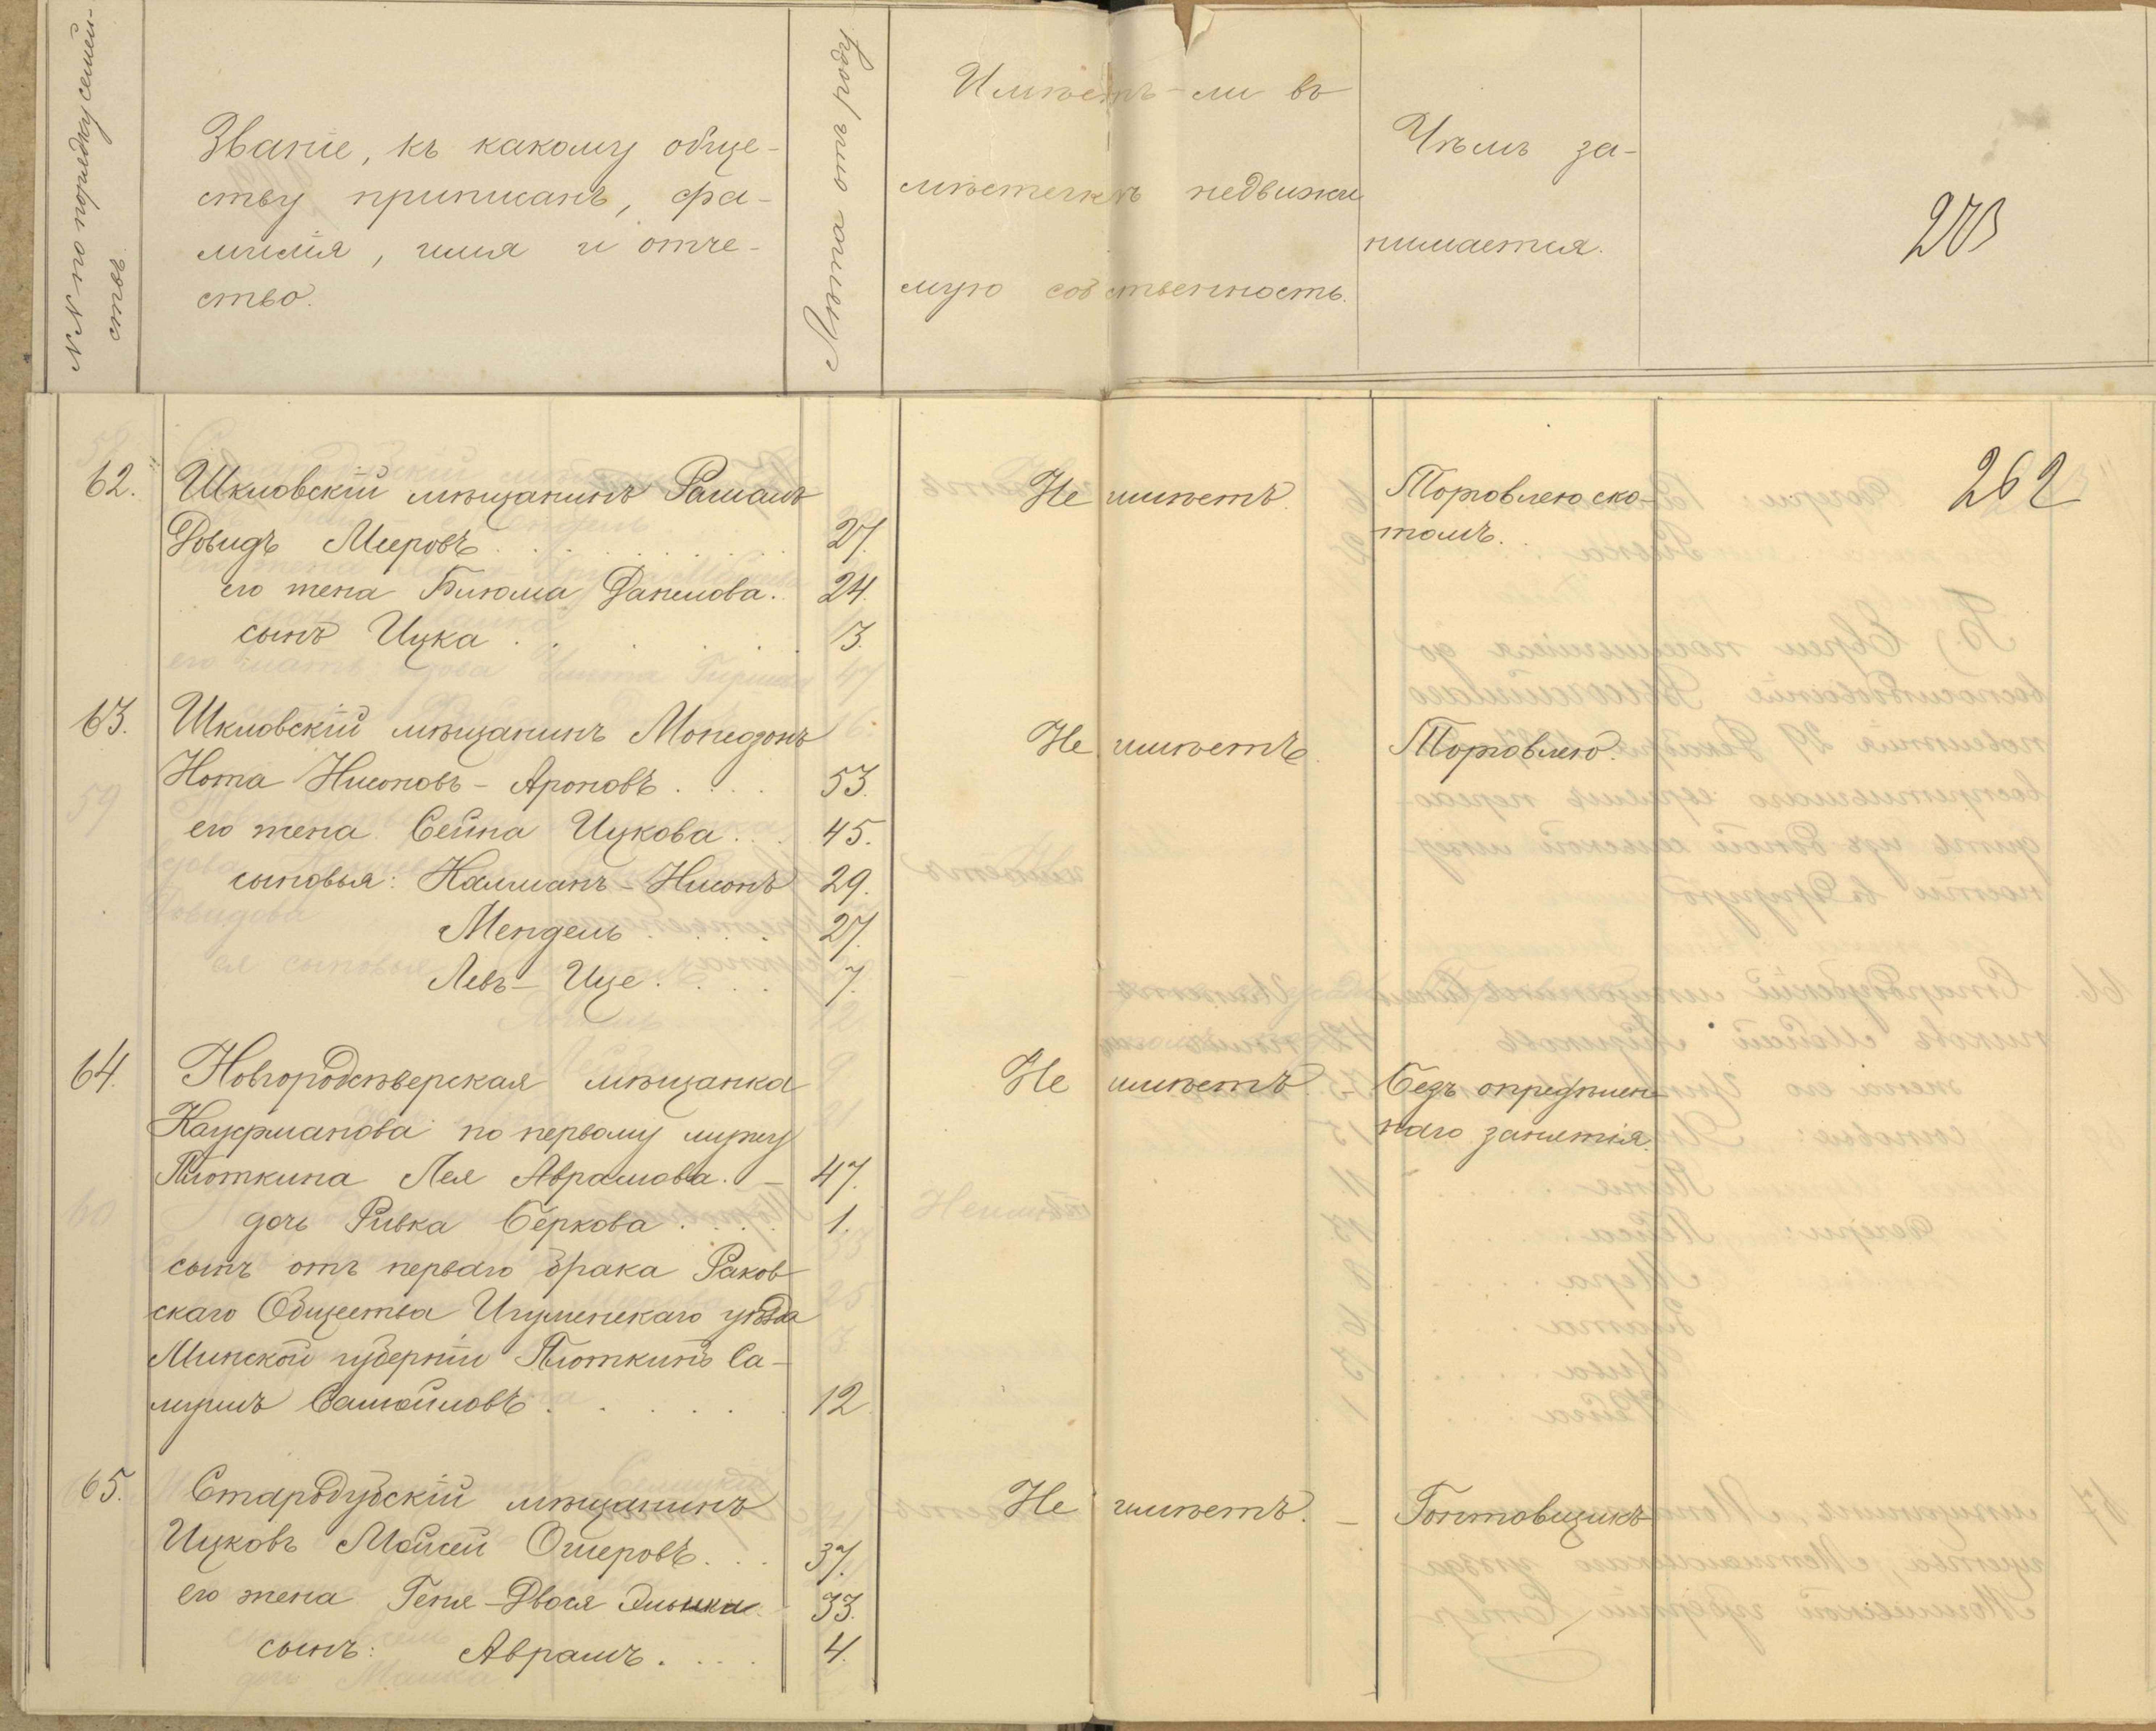 №№ по порядку семей-
ствъ
Званіе, къ какому обще-
ству приписанъ, фа-
милія, имя и отче-
ство.
Лѣта отъ роду
Имѣетъ-ли въ
мѣстечкѣ недвижи
мую собственность.
Чѣмъ за-
нимается.
203
262
62. Шкловскій мѣщанинъ
Довидъ Мееровъ 27.
его жена Блюма Данилова. 24.
сынъ Ицка 3.
Не имѣетъ.
Торговлею ско-
томъ.
63. Шкловскій мѣщанинъ Монедзонъ
Нота Нисоновъ-Ароновъ 53.
его жена Сейна Ицкова. 45.
сыновья: Калманъ-Нисонъ 29.
Мендель 27.
Левъ-Ице. 7.
Не имѣетъ.
Торговлею.
64. Новгородсѣверская мѣщанка
Кауфманова по первому мужу
Плоткина Лея Абрамова. - 47.
дочь Ривка Беркова 1.
сынъ отъ перваго брака Раков
скаго Общества Игуменскаго уѣзда
Минской губерніи Плоткинъ Са-
муилъ Самойловъ 12
Не имѣетъ.
Безъ опредѣлен
наго занятія.
65. Стародубскій мѣщанинъ
Ицковъ Мойсей Ошеровъ. 37.
его жена Геня-Двося 33.
сынъ: Абрамъ. 4.
Не имѣетъ. -
Гонтовщикъ